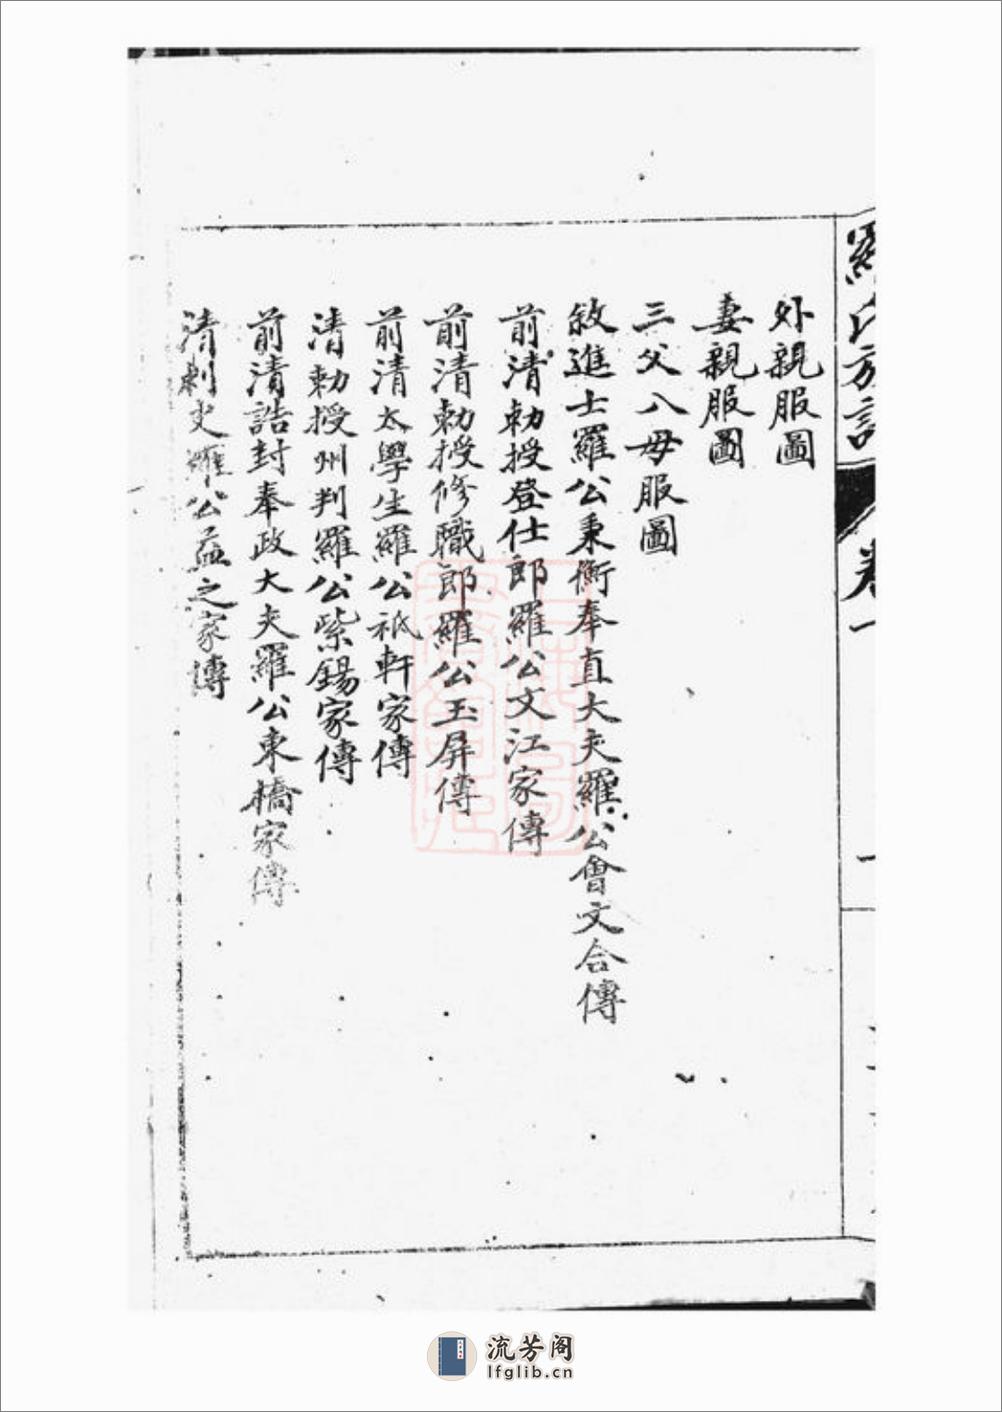 外親服圖
妻親服圖
三父八母服圖
敘進士羅公秉衡奉直大夫羅公會文合傳
前清勅授登仕郎羅公文江家傳
前清勅授修職郎羅公玉屏傳
前清太學生羅公祗軒家傳
清勅授州判羅公紫錫家傳
前清誥封奉政大夫羅公東橋家傳
清刺史羅公益之家傳
羅氏族譜
卷一
流芳阁
lfglib.cn